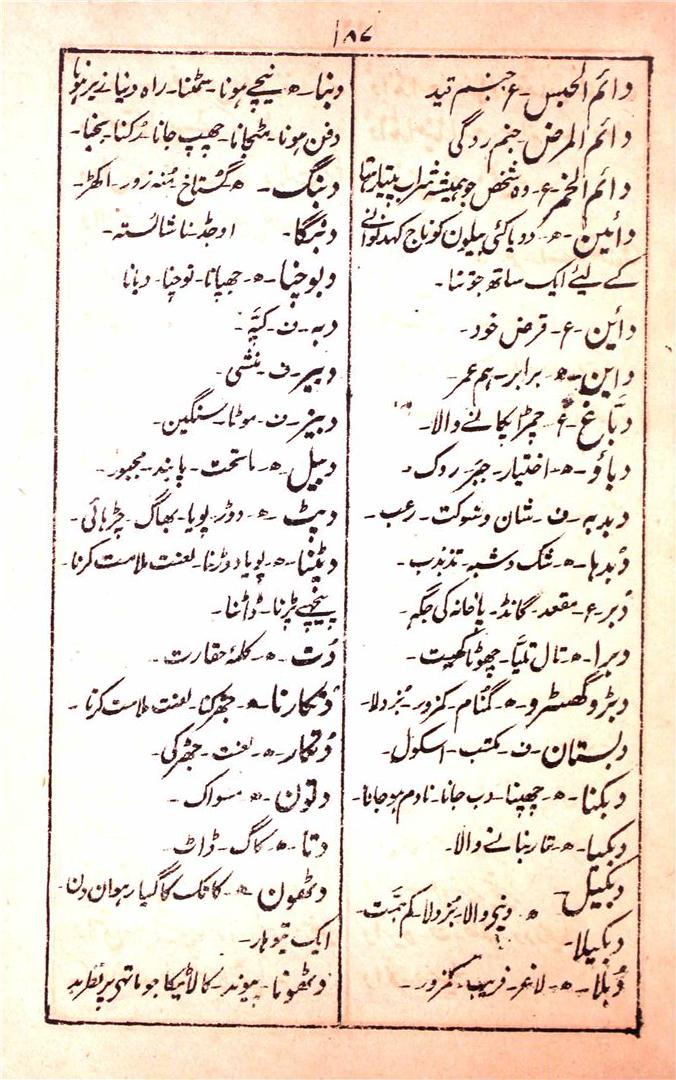 ۱۸۷
دائم الحبس - ع جنم قید
دائم المرض - جنم روگی
دائم الخمر - ع - وہ شخص جو ہمیشہ شراب پیتا رہتا
دائین - ھ - دو یا کئی بیلون کو ناج کہندلوانے
کے لیئے ایک ساتھ جوتنا -
دائن - ع - قرض خود -
داین - ھ - برابر - ہم عمر -
دبّاغ - ع - چمڑا پکانے والا -
دباؤ - ھ - اختیار - جبر - روک -
دبدبہ - ف - شان و شوکت - رعب -
دُبدہا - ھ - شک و شبہ - تذبذب -
دُبر - ع - مقعد - گانڈ - پاخانہ کی جگہ -
دبرا - ھ - تال تلیّا - چھوٹا کھیت -
دبڑو گھسڑو - ھ - گمنام - کمزور - بُزدلا -
دبستان - ف - مکتب - اسکول -
دبکنا - ھ - چھپنا - دب جانا - نادم ہو جانا -
دبکیا - ھ - تار بنانے والا -
دبکیل -
ھ - دبنے والا - بُزدلا - کم ہمّت -
دبکیلا -
دُبلا - ھ - لاغر - غریب - کمزور -
دبنا - ھ - نیچے ہونا - سمٹنا - راہ دنیا زیر ہونا
دفن ہونا - مٹجانا - چھپ جانا - رُکنا - بچنا -
دبنگ - ھ گستاخ - مُنہ زور - اکھڑ -
دبنگا - اوجڈ - ناشائستہ -
دبوچنا - ھ - چھپانا - نوچنا - دبانا
دبہ - ف - کپّہ -
دبیر - ف - منشی -
دبیز - ف - موٹا - سنگین -
دبیل - ھ - ماتحت - پابند - مجبور -
دپٹ - ھ - دوڑ - پویا - بھاگ - چڑہائی -
دپٹنا - ھ - پویا دوڑنا - لعنت ملامت کرنا -
پیچھے پڑنا - ڈاٹنا -
دُت - ھ - کلمۂ حقارت -
دُتکارنا - ھ - جھڑکنا - لعنت ملامت کرنا -
دُتکار - ھ - لعنت - جھڑکی -
دتون - ھ - مسواک -
دتا - ھ - کاگ - ڈاٹ -
دٹھون - ھ - کاتک کا گیارہوان دن -
ایک تیوہار -
دٹھونا - پیوند - کالا ٹیکا جو ماتھے پر نظر بد